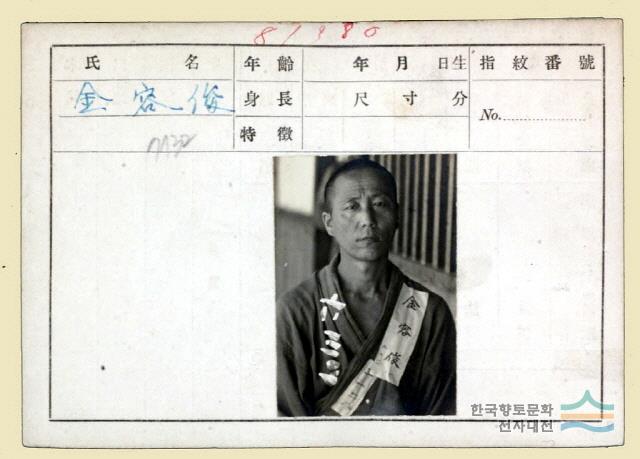 81980
氏名 年齡 年月日生 指紋番號
金容俊 身長 尺寸分 No.
特徵
金容俊
한국향토문화
전자대전